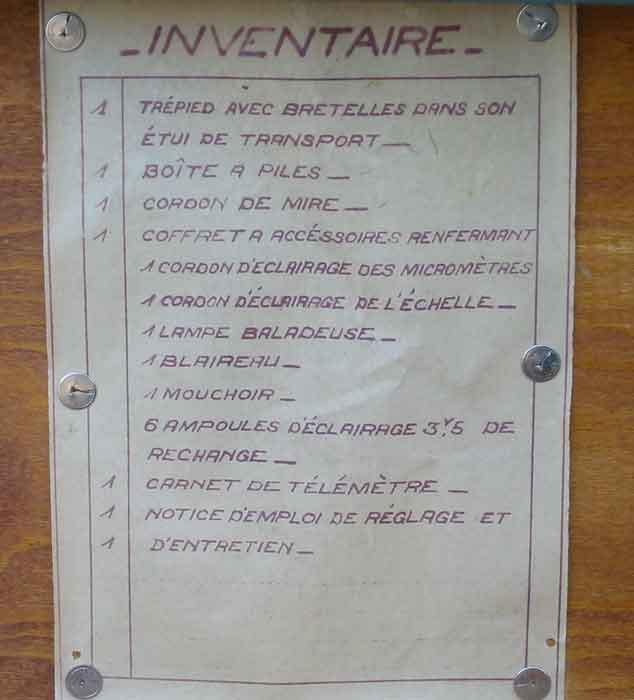 - INVENTAIRE -
1 TRÉPIED AVEC BRETELLES DANS SON
ÉTUI DE TRANSPORT —
1 BOÎTE A PILES —
1 CORDON DE MIRE —
1 COFFRET A ACCÉSSOIRES RENFERMANT
1 CORDON D'ECLAIRAGE DES MICROMÈTRES
1 CORDON D'ÉCLAIRAGE DE L'ÉCHELLE —
1 LAMPE BALADEUSE —
1 BLAIREAU —
1 MOUCHOIR —
6 AMPOULES D'ÉCLAIRAGE 3V,5 DE
RECHANGE —
1 CARNET DE TÉLÉMÈTRE —
1 NOTICE D'EMPLOI DE RÉGLAGE ET
1 D'ENTRETIEN —